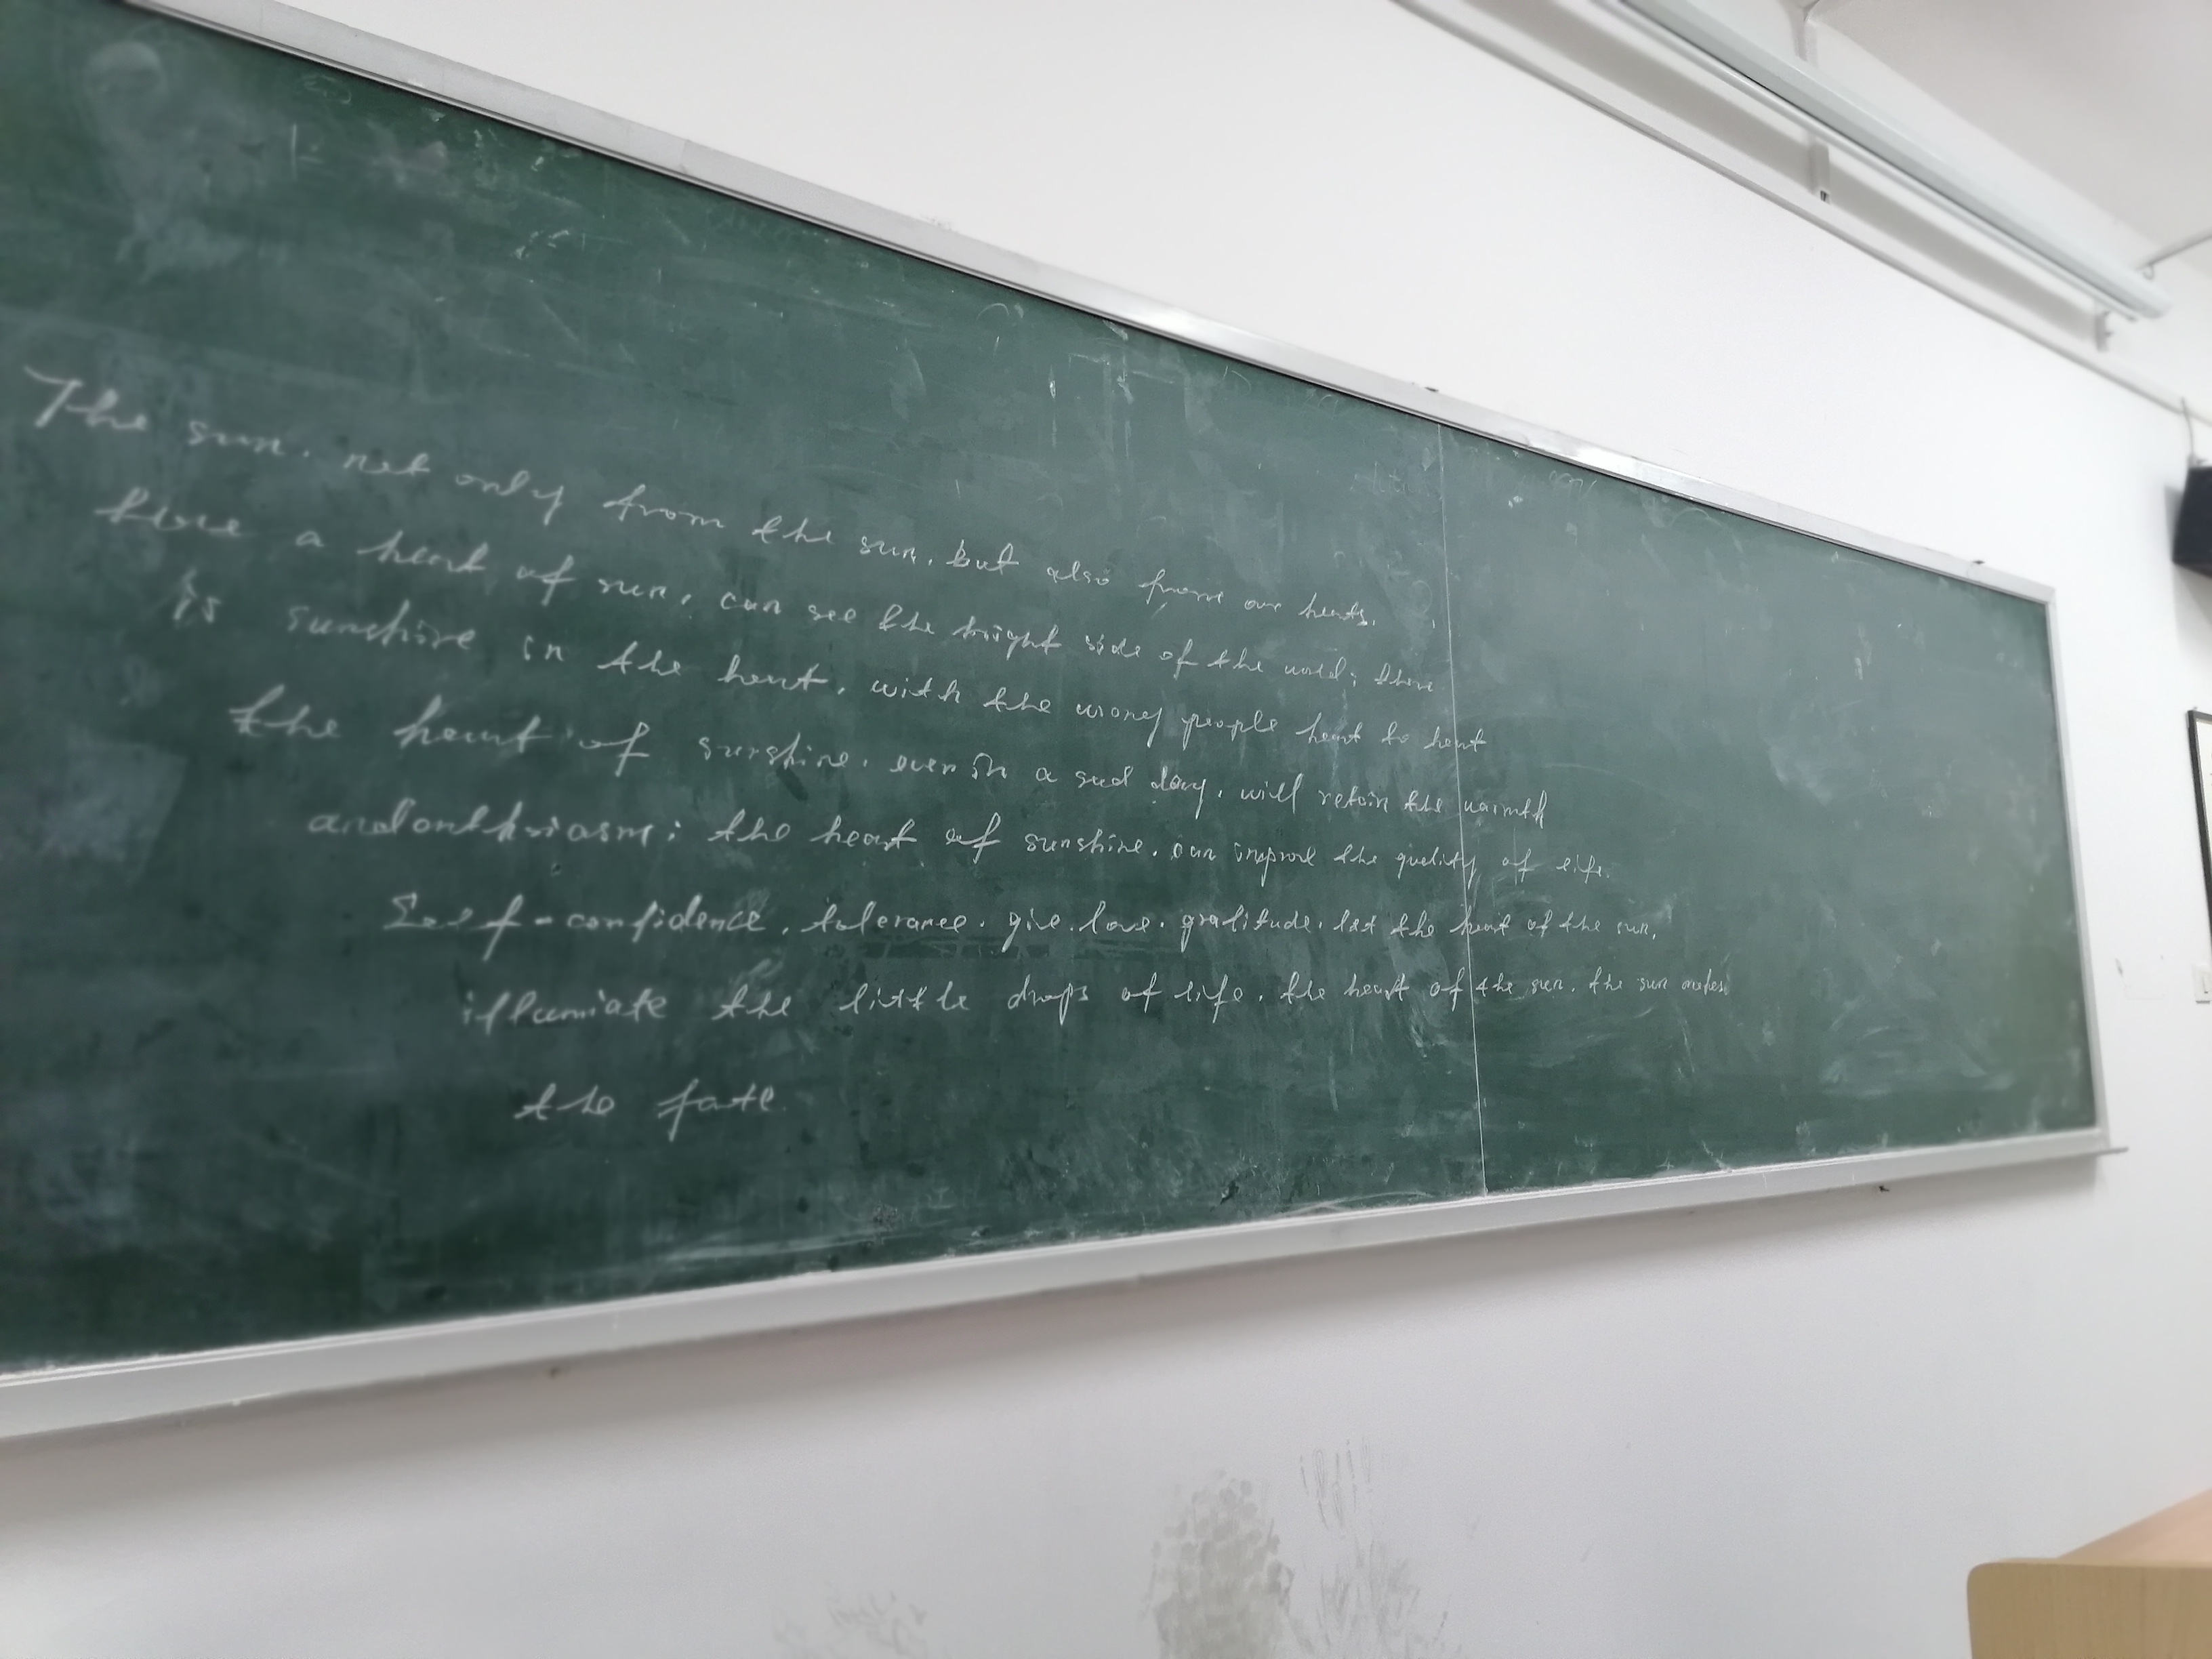 The sun, not only from the sun, but also from our hearts.
have a heart of sun, can see the bright side of the world; there
is sunshine in the heart, with the wrong people heart to heart
the heart of sunshine, even in a sad day, will retain the warmth
and enthusiasm; the heart of sunshine, can improve the quality of life.
Self-confidence, tolerance, give, love, gratitude, let the heart of the sun,
illumiate the little drops of life, the heart of the sun, the sun
the fate